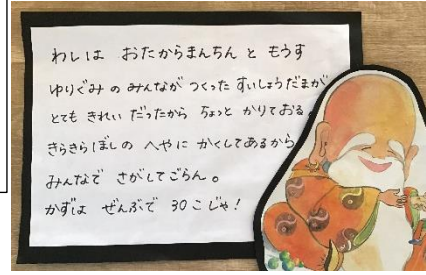 わしは おたからまんちん と もうす
ゆりぐみ の みんなが つくった すいしょうだまが
とても きれい だったから ちょっと かりておる。
きらきらぼしの へやに かくしてあるから
みんなで さがしてごらん。
かずは ぜんぶで 30こじゃ!